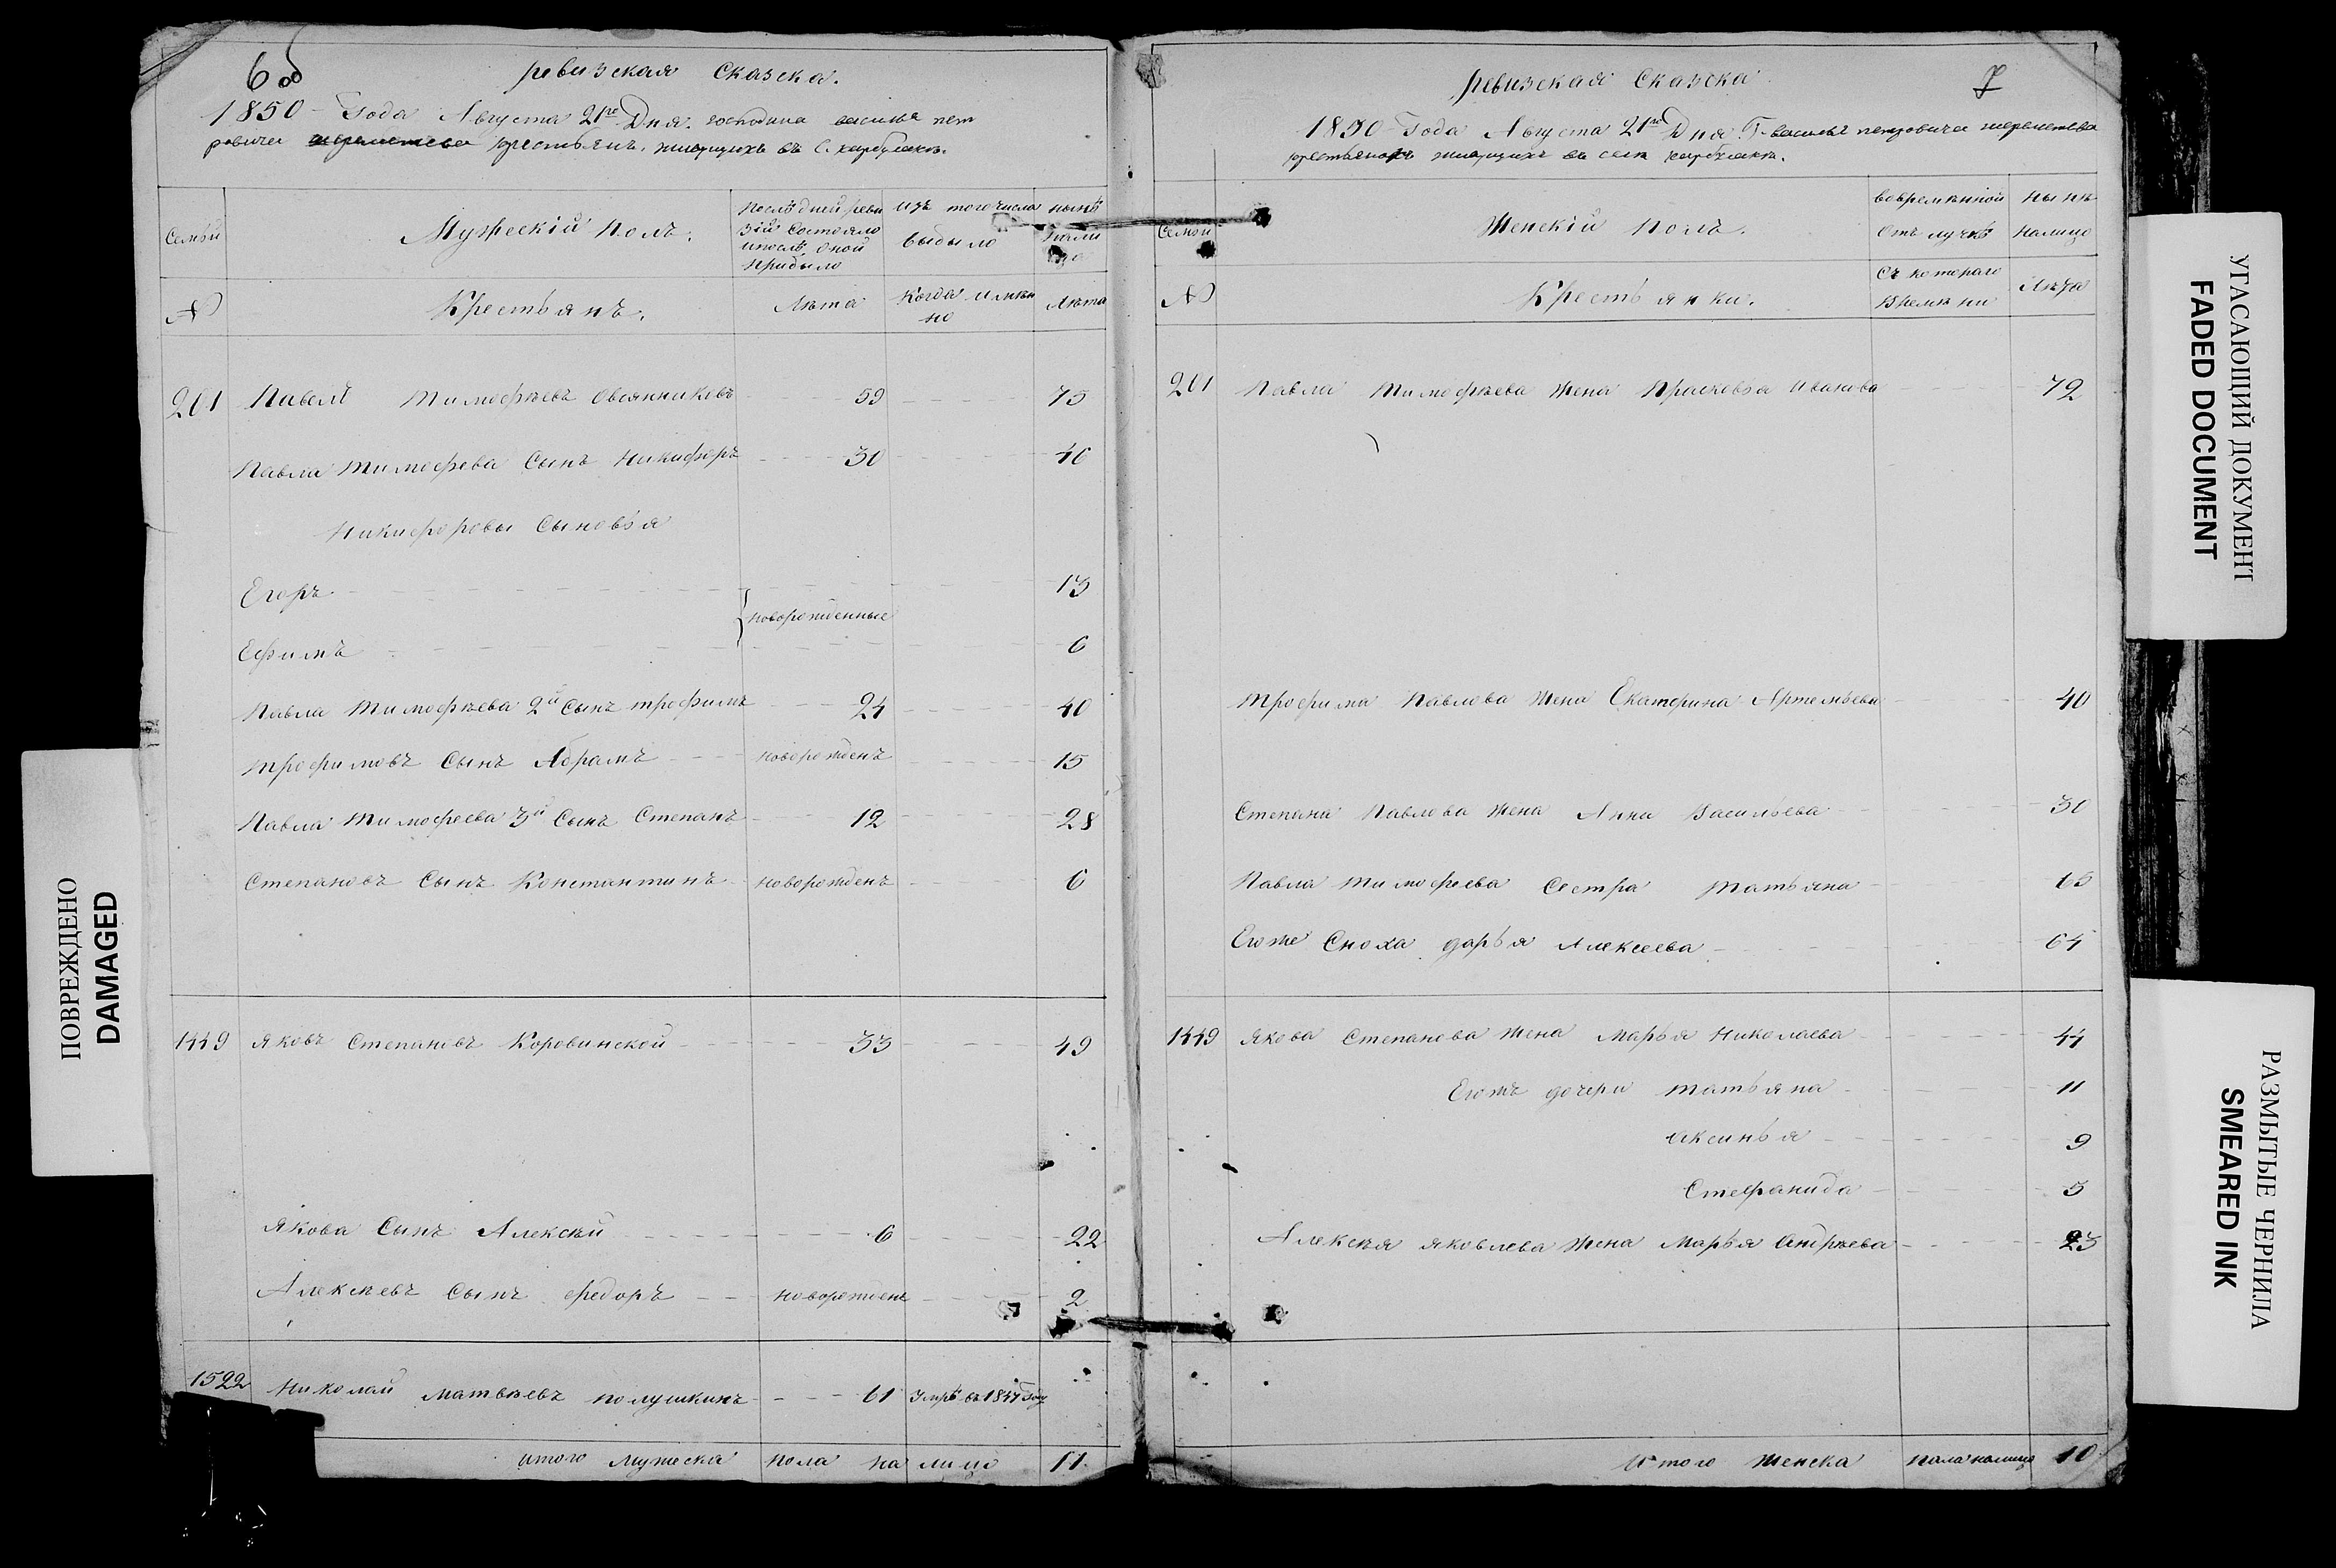 6 об
ревизская Сказска.
1850 Года Августа 21го Дня. господина василья пет
ровича шереметева крестьянъ, жиущихъ въ С.
Семьи
Мужескій полъ.
Послѣдней реви
зіи состояло
и послѣ оной
прибыло
изъ того числа
выбыло
нынѣ
нали
цо
№
Крестьянъ.
Лѣта
Когда имян
но
Лѣта
201 Павелъ Тимофѣевъ Овсянниковъ 59 75
Павла Тимофева Сынъ Никифоръ 30 46
Никифоровы Сыновья
Егоръ 13
новорожденные
Ефимъ 6
Павла Тимофѣева 2й Сынъ трофимъ 24 40
Трофимовъ Сынъ Абрамъ новорожденъ 15
Павла Тимофеева 3й Сынъ Степанъ 12 28
Степановъ Сынъ Константинъ новорожденъ 6
1449 Яковъ Степановъ Коровинской 33 49
Якова Сынъ Алексѣй 6 22
Алексѣевъ Сынъ федоръ новорожденъ 2
1522 Николай Матвѣевъ полушкинъ 61 Умръ въ 1834 Году
итого мужеска пола на лицо 11.
ревизская Сказска
7
1850 Года Августа 21го Дня Г. василья петровича шереметева
крестьянокъ жиущихъ въ селѣ
Семьи
Женскій полъ.
вовремѣнной
отълучкѣ
нынѣ
налицо
№
Крестьянки.
Съ котораго
времѣни
Лѣта
201 Павла Тимофѣева жена Прасковья Иванова 72
Трофима Павлова жена Екатерина Артемьева 40
Степана Павлова жена Анна Васильева 30
Павла Тимофеева Сестра Татьяна 65
Егоже Сноха дарья Алексеева 64
1449 Якова Степанова жена Марья Николаева 44
Егожъ дочери татьяна 11
Аксинья 9
Стефанида 5
Алексѣя яковлева жена Марья Андрѣева 23
Итого женска пала налицо 10
ПОВРЕЖДЕНО
DAMAGED
УГАСАЮЩИЙ ДОКУМЕНТ
FADED DOCUMENT
РАЗМЫТЫЕ ЧЕРНИЛА
SMEARED INK